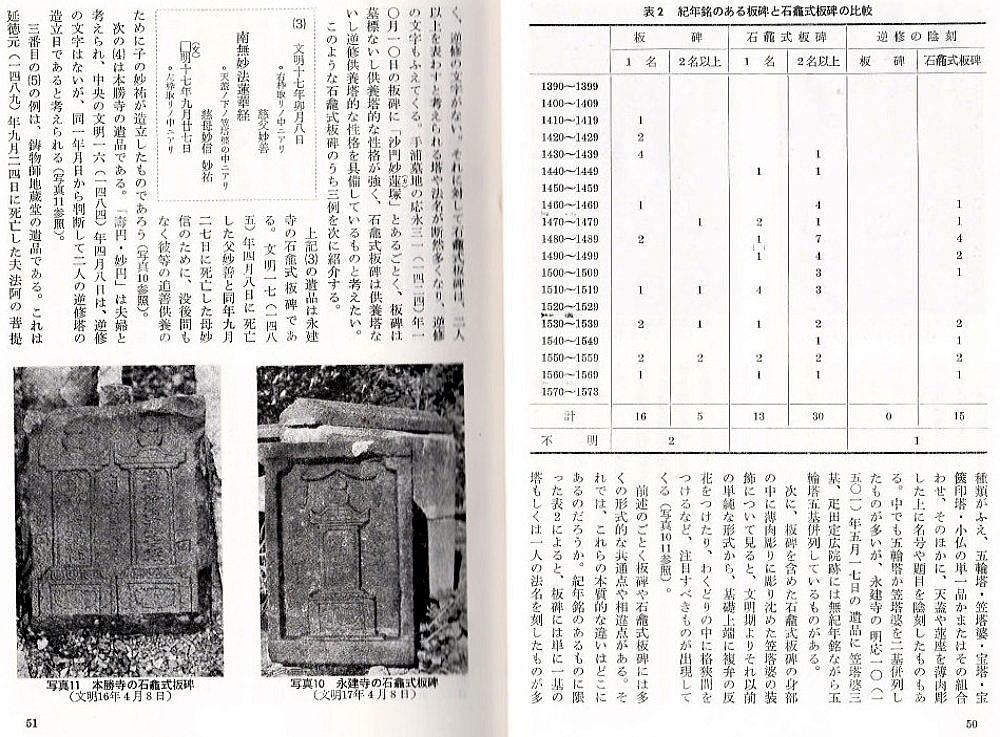 表2 紀年銘のある板碑と石龕式板碑の比較
板 碑 石龕式板碑 逆修の陰刻
1名 2名以上 1名 2名以上 板碑 石龕式板碑
1390～1399
1400～1409
1410～1419 1
1420～1429 2
1430～1439 4 1
1440～1449 1 1
1450～1459
1460～1469 1 4 1
1470～1479 1 2 1 1
1480～1489 2 1 7 4
1490～1499 1 4 2
1500～1509 3 1
1510～1519 1 1 4 3
1520～1529
1530～1539 2 1 1 2 2
1540～1549 1 1
1550～1559 2 2 2 2 2
1560～1569 1 1 1 1
1570～1573
計 16 5 13 30 0 15
不明 2 1
種類がふえ、五輪塔・笠塔婆・宝塔・宝
篋印塔・小仏の単一品かまたはその組合
わせ、そのほかに、天蓋や蓮座を薄肉彫
した上に名号や題目を陰刻したものもあ
る。中でも五輪塔か笠塔婆を二基併列し
たものが多いが、永建寺の明応一〇（一
五〇一）年五月一七日の遺品に笠塔婆三
基、疋田定広院跡には無紀年銘ながら五
輪塔五基併列しているものがある。
次に、板碑を含めた石龕式板碑の身部
の中に薄肉彫りに彫り沈めた笠塔婆の装
飾について見ると、文明期よりそれ以前
の単純な形式から、基礎上端に複弁の反
花をつけたり、わくどりの中に格狭間を
つけるなど、注目すべきものが出現して
くる（写真10 11参照）。
前述のごとく板碑や石龕式板碑には多
くの形式的な共通点や相違点がある。そ
れでは、これらの本質的な違いはどこに
あるのだろうか。紀年銘のあるものに限
った表2によると、板碑には単に一基の
塔もしくは一人の法名を刻したものが多
50
く、逆修の文字がない。それに対して石龕式板碑は、二人
以上を表わすと考えられる塔や法名が断然多くなり、逆修
の文字もふえてくる。手浦墓地の応永三一（一四二四）年一
〇月一〇日の板碑に「沙門妙蓮塚」とあるごとく、板碑は
墓標ないし供養塔的な性格が強く、石龕式板碑は供養塔な
いし逆修供養塔的な性格を具備しているものと考えたい。
このような石龕式板碑のうち三例を次に紹介する。
(3) 文明十七年卯月八日
。右枠取リノ中ニアリ
慈父妙善
南無妙法蓮華経
。天蓋ノ下ノ笠塔婆の中ニアリ
慈母妙信 妙祐
（文）
□明十七年九月廿七日
。左枠取リノ中ニアリ
上記(3)の遺品は永建
寺の石龕式板碑であ
る。文明一七（一四八
五）年四月八日に死亡
した父妙善と同年九月
二七日に死亡した母妙
信のために、没後間も
なく彼等の追善供養の
ために子の妙祐が造立したものであろう（写真10参照）。
次の(4)は本勝寺の遺品である。「壽円・妙円」は夫婦と
考えられ、中央の文明一六（一四八四）年四月八日は、逆修
の文字はないが、同一年月日から判断して二人の逆修塔の
造立日であると考えられる（写真11参照）。
三番目の(5)の例は、鋳物師地蔵堂の遺品である。これは
延徳元（一四八九）年九月二四日に死亡した夫法阿の菩提
写真10 永建寺の石龕式板碑
（文明17年4月8日）
写真11 本勝寺の石龕式板碑
（文明16年4月8日）
51